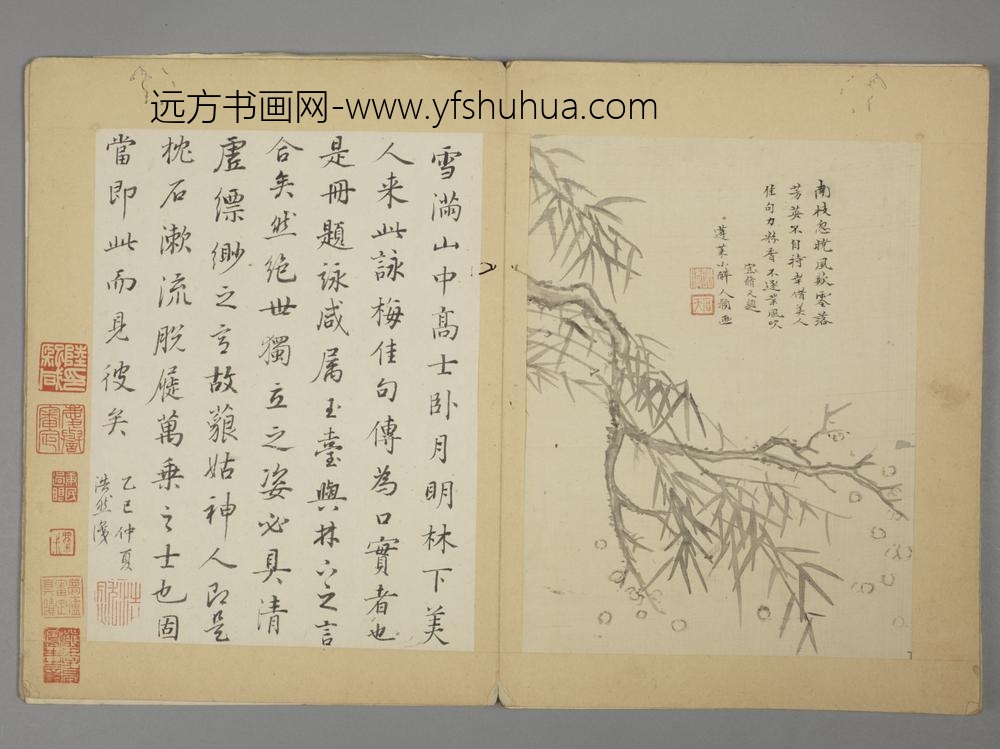 远方书画网-www.yfshuhua.com
南枝忽晚風欹零落
芳英不自持幸借美人
佳句力移香不逐業風吹
蓬莱小醉人 画
雪滿山中高士卧月明林下美
人来此詠梅佳句傳為口實者也
是冊題詠咸属玉臺與林下之言
合矣然絶世獨立之姿必具清
虚縹緲之言故藐姑神人即是
枕石漱流脱屣萬乗之士也固
當即此而見彼矣
乙巳仲夏
浩然識